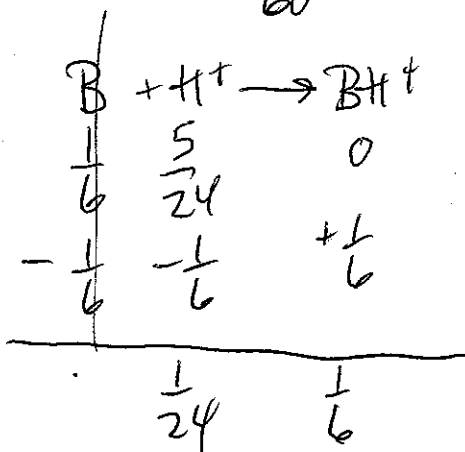 60
B + H⁺ → BH⁺
1/6 5/24 0
- 1/6 - 1/6 + 1/6
1/24 1/6